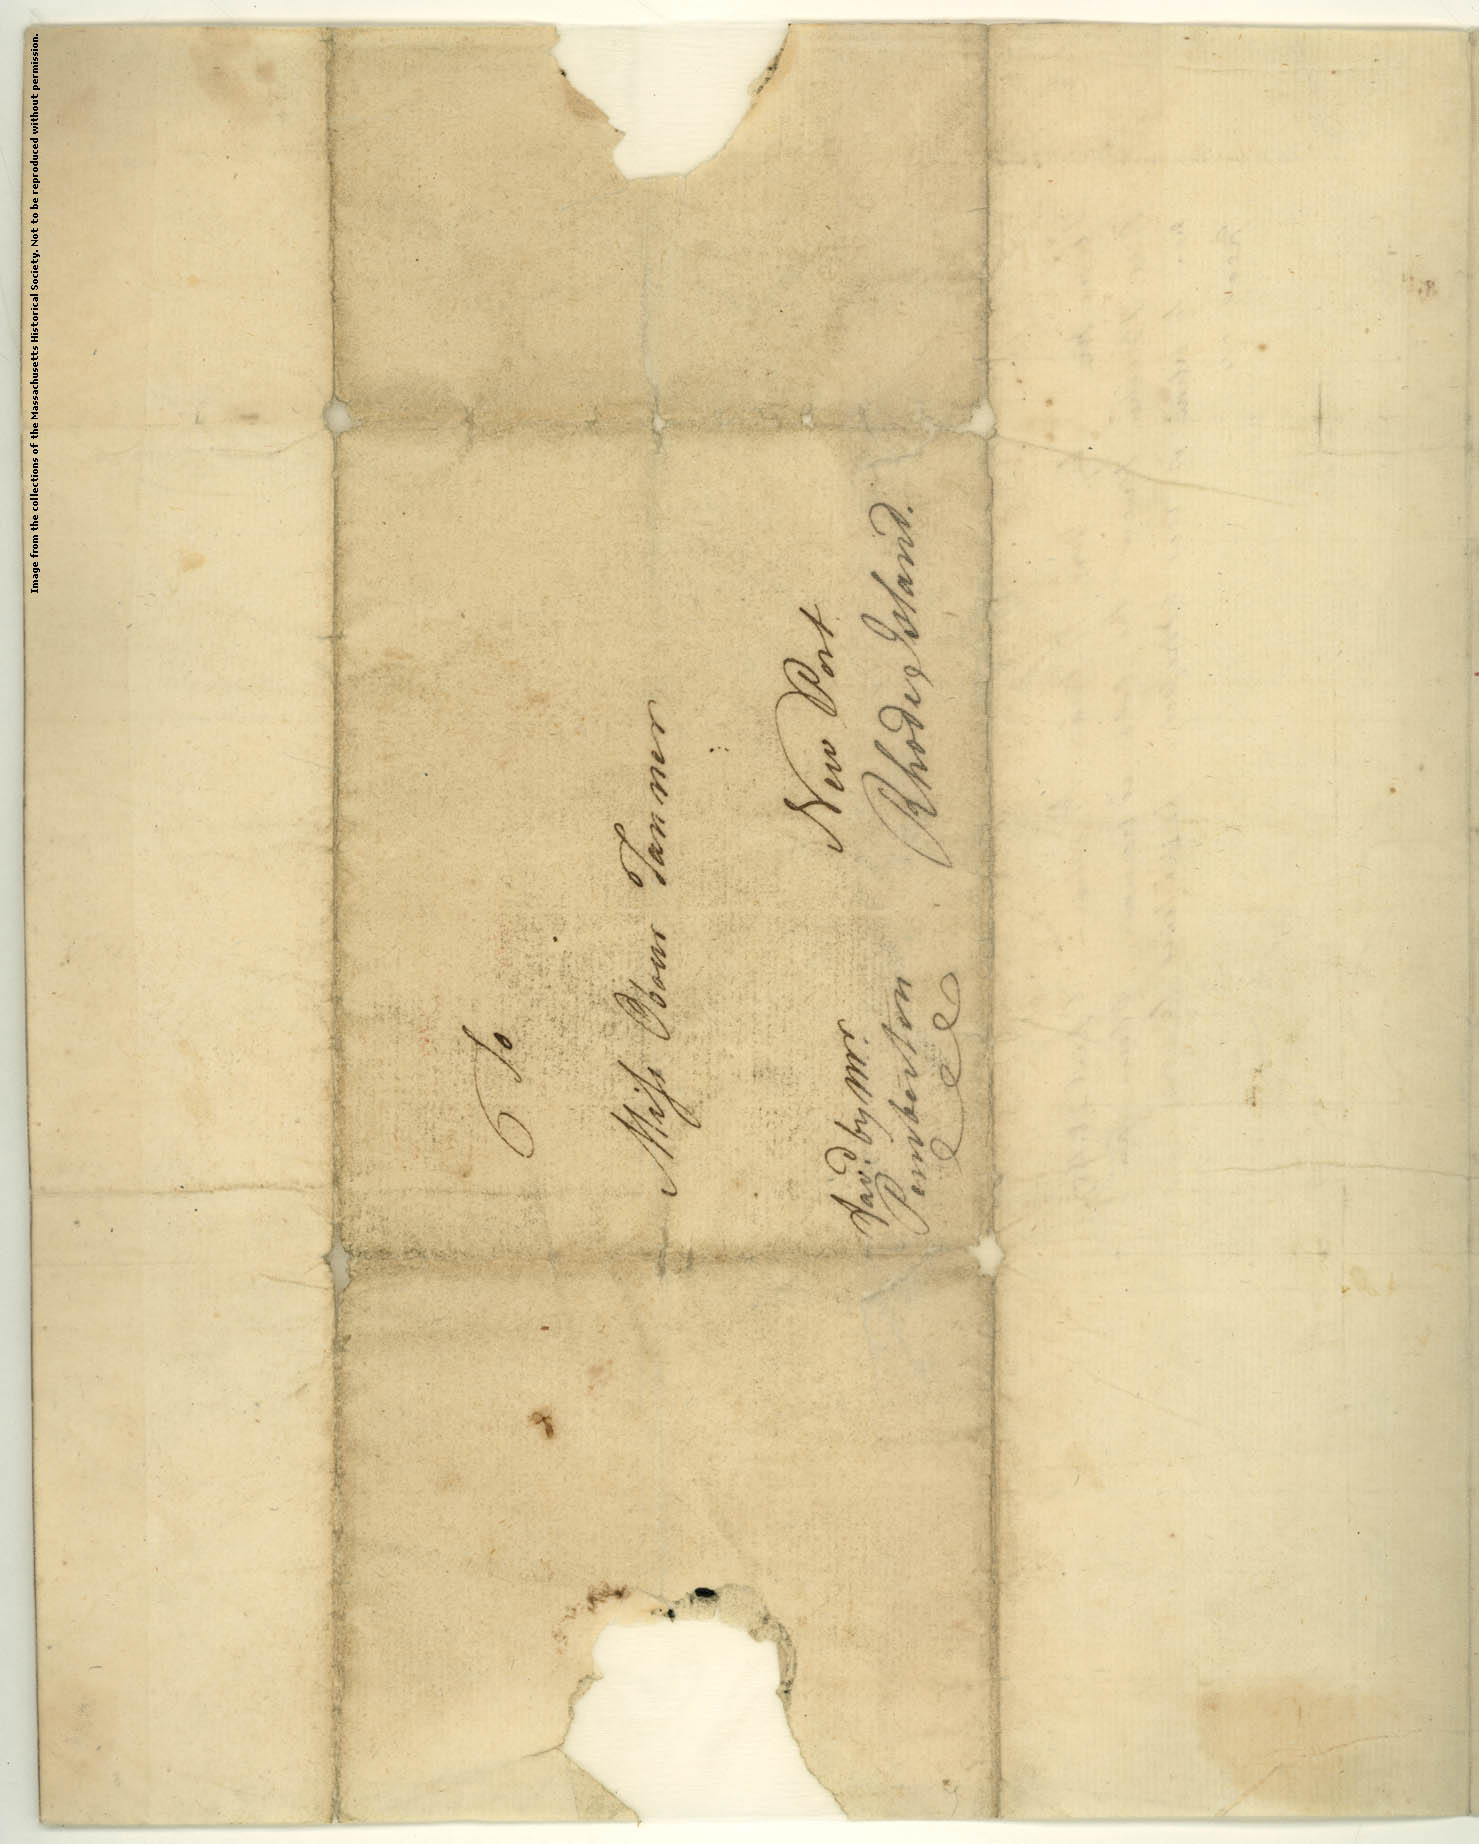 To
Miss Obour Tanner
New Port
Rhode Island.
favd. by Mr.
Pemberton
Image from the collections of the Massachusetts Historical Society. Not to be reproduced without permission.